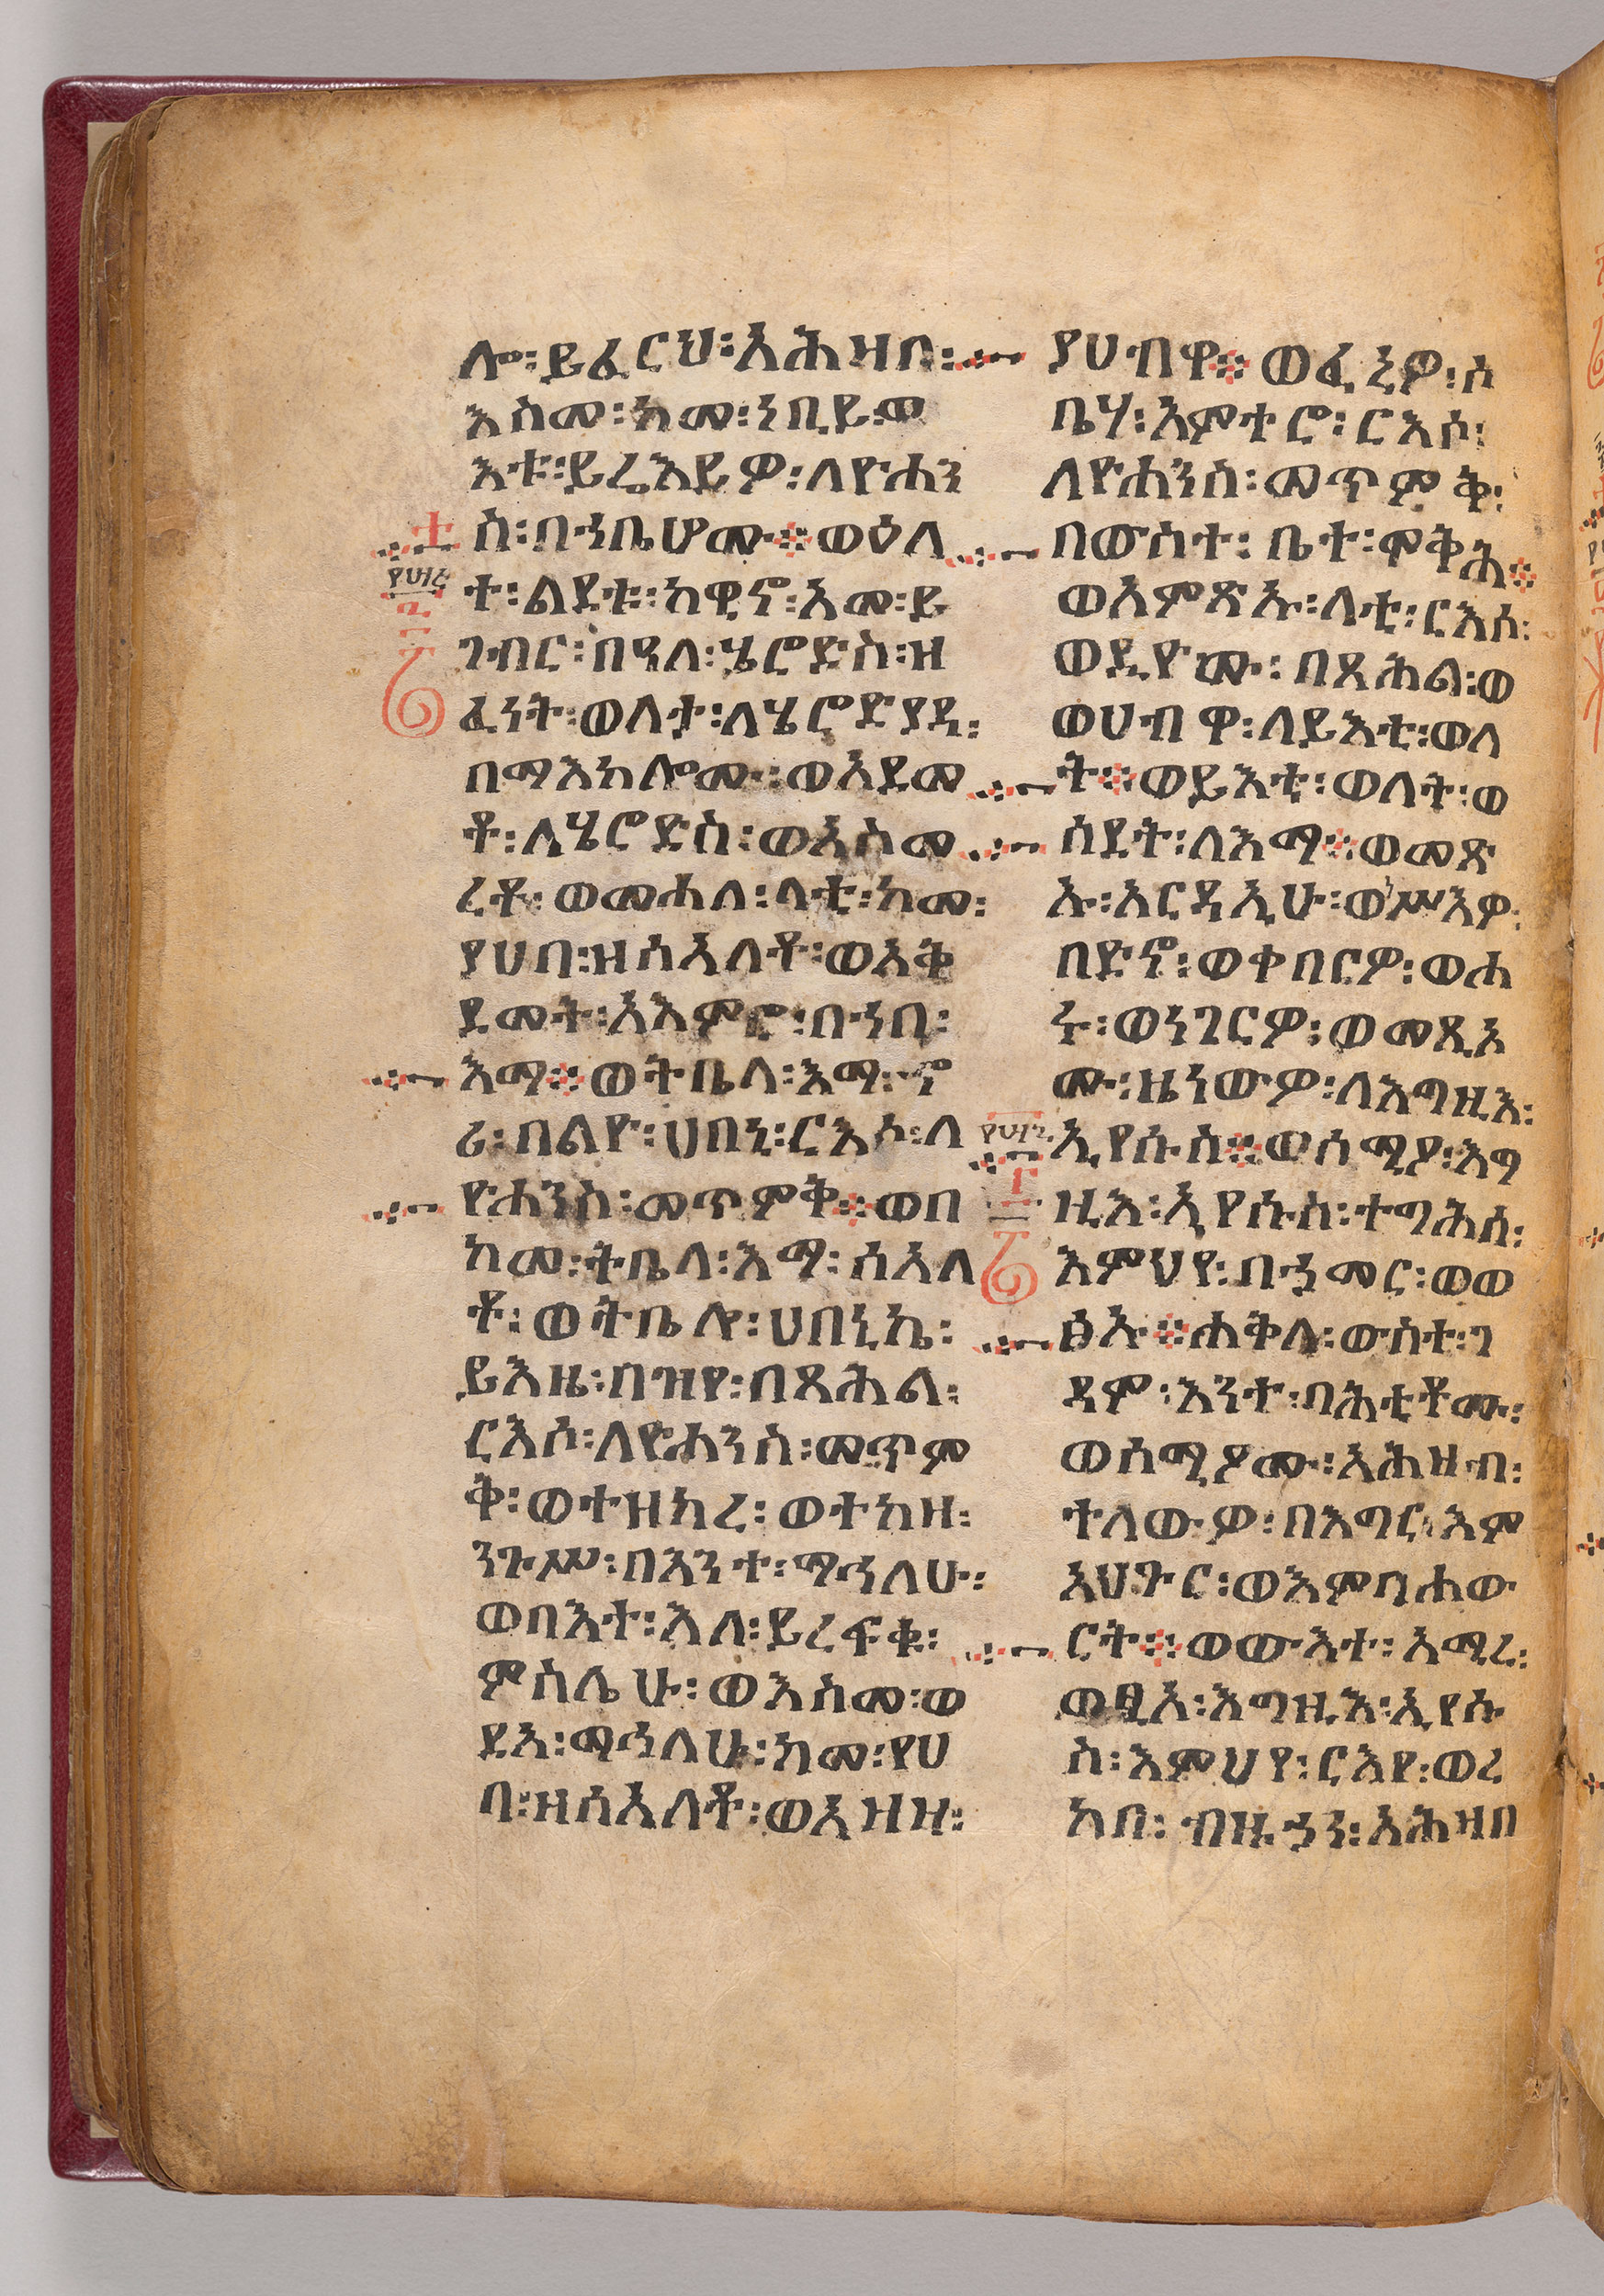 ሎ፡ይፈርህ፡አሕዛበ፡
እስመ፡ከመ፡ነቢይ፡ው
እቱ፡ይሬእይዎ፡ለዮሐን
ስ፡በኀቤሆሙ፨ወዕለ
ተ፡ልደቱ፡ከዊኖ፡አመ፡ይ
ገብር፡በዓለ፡ሄሮድስ፡ዘ
ፈነት፡ወለታ፡ለሄሮድያዳ፡
በማእከሎሙ፡ወአደመ
ቶ፡ለሄሮድስ፡ወአስመ
ረቶ፡ወመሐለ፡ላቲ፡ከመ፡
ያሀባ፡ዘሰአለቶ፡ወአቅ
ደመት፡አእምሮ፡በኀበ፡
እማ፨ወትቤላ፡እማ፡ኖ
ሪ፡በልዮ፡ሀበኒ፡ርእሶ፡ለ
ዮሐንስ፡መጥምቅ፨ወበ
ከመ፡ትቤላ፡እማ፡ሰአለ
ቶ፡ወትቤሎ፡ሀበኒኬ፡
ይእዜ፡በዝየ፡በጻሕል፡
ርእሶ፡ለዮሐንስ፡መጥም
ቅ፡ወተዘከረ፡ወተከዘ፡
ንጉሥ፡በእንተ፡ማኅላሁ፡
ወበእተ፡እለ፡ይረፍቁ፡
ምስሌሁ፡ወእስመ፡ወ
ደአ፡ማኅላሁ፡ከመ፡የሀ
ባ፡ዘሰአለቶ፡ወአዘዘ፡
ያሀብዋ፨ወፈነዎ፡ሶ
ቤሃ፡እምተሮ፡ርእሶ፡
ለዮሐንስ፡መጥምቅ፡
በውስተ፡ቤተ፡ሞቅሕ፨
ወአምጽኡ፡ላቲ፡ርእሶ፡
ወደዮሙ፡በጻሕል፡ወ
ወሀብዋ፡ለይእቲ፡ወለ
ት፨ወይእቲ፡ወለት፡ወ
ሰደት፡ለእማ፨ወመጽ
ኡ፡አርዳኢሁ፡ወሥአዎ፡
በድኖ፡ወቀበርዎ፡ወሐ
ሩ፡ወነገርዎ፡ወመጺኦ
ሙ፡ዜነውዎ፡ለእግዚእ፡
ኢየሱስ፨ወሰሚዖ፡እግ
ዚእ፡ኢየሱስ፡ተግሕሰ፡
እምህየ፡በኀመር፡ወወ
ፅአ፨ሐቅለ፡ውስተ፡ገ
ዳም፡እንተ፡ባሕቲቶሙ፡
ወሰሚዖሙ፡አሕዛብ፡
ተለውዎ፡በእግር፡እም
አህጉር፡ወእምባሐው
ርት፨ወውእተ፡አሚረ፡
ወፂአ፡እግዚእ፡ኢየሱ
ስ፡እምህየ፡ርእየ፡ወረ
ከበ፡ብዙኃን፡አሕዛበ